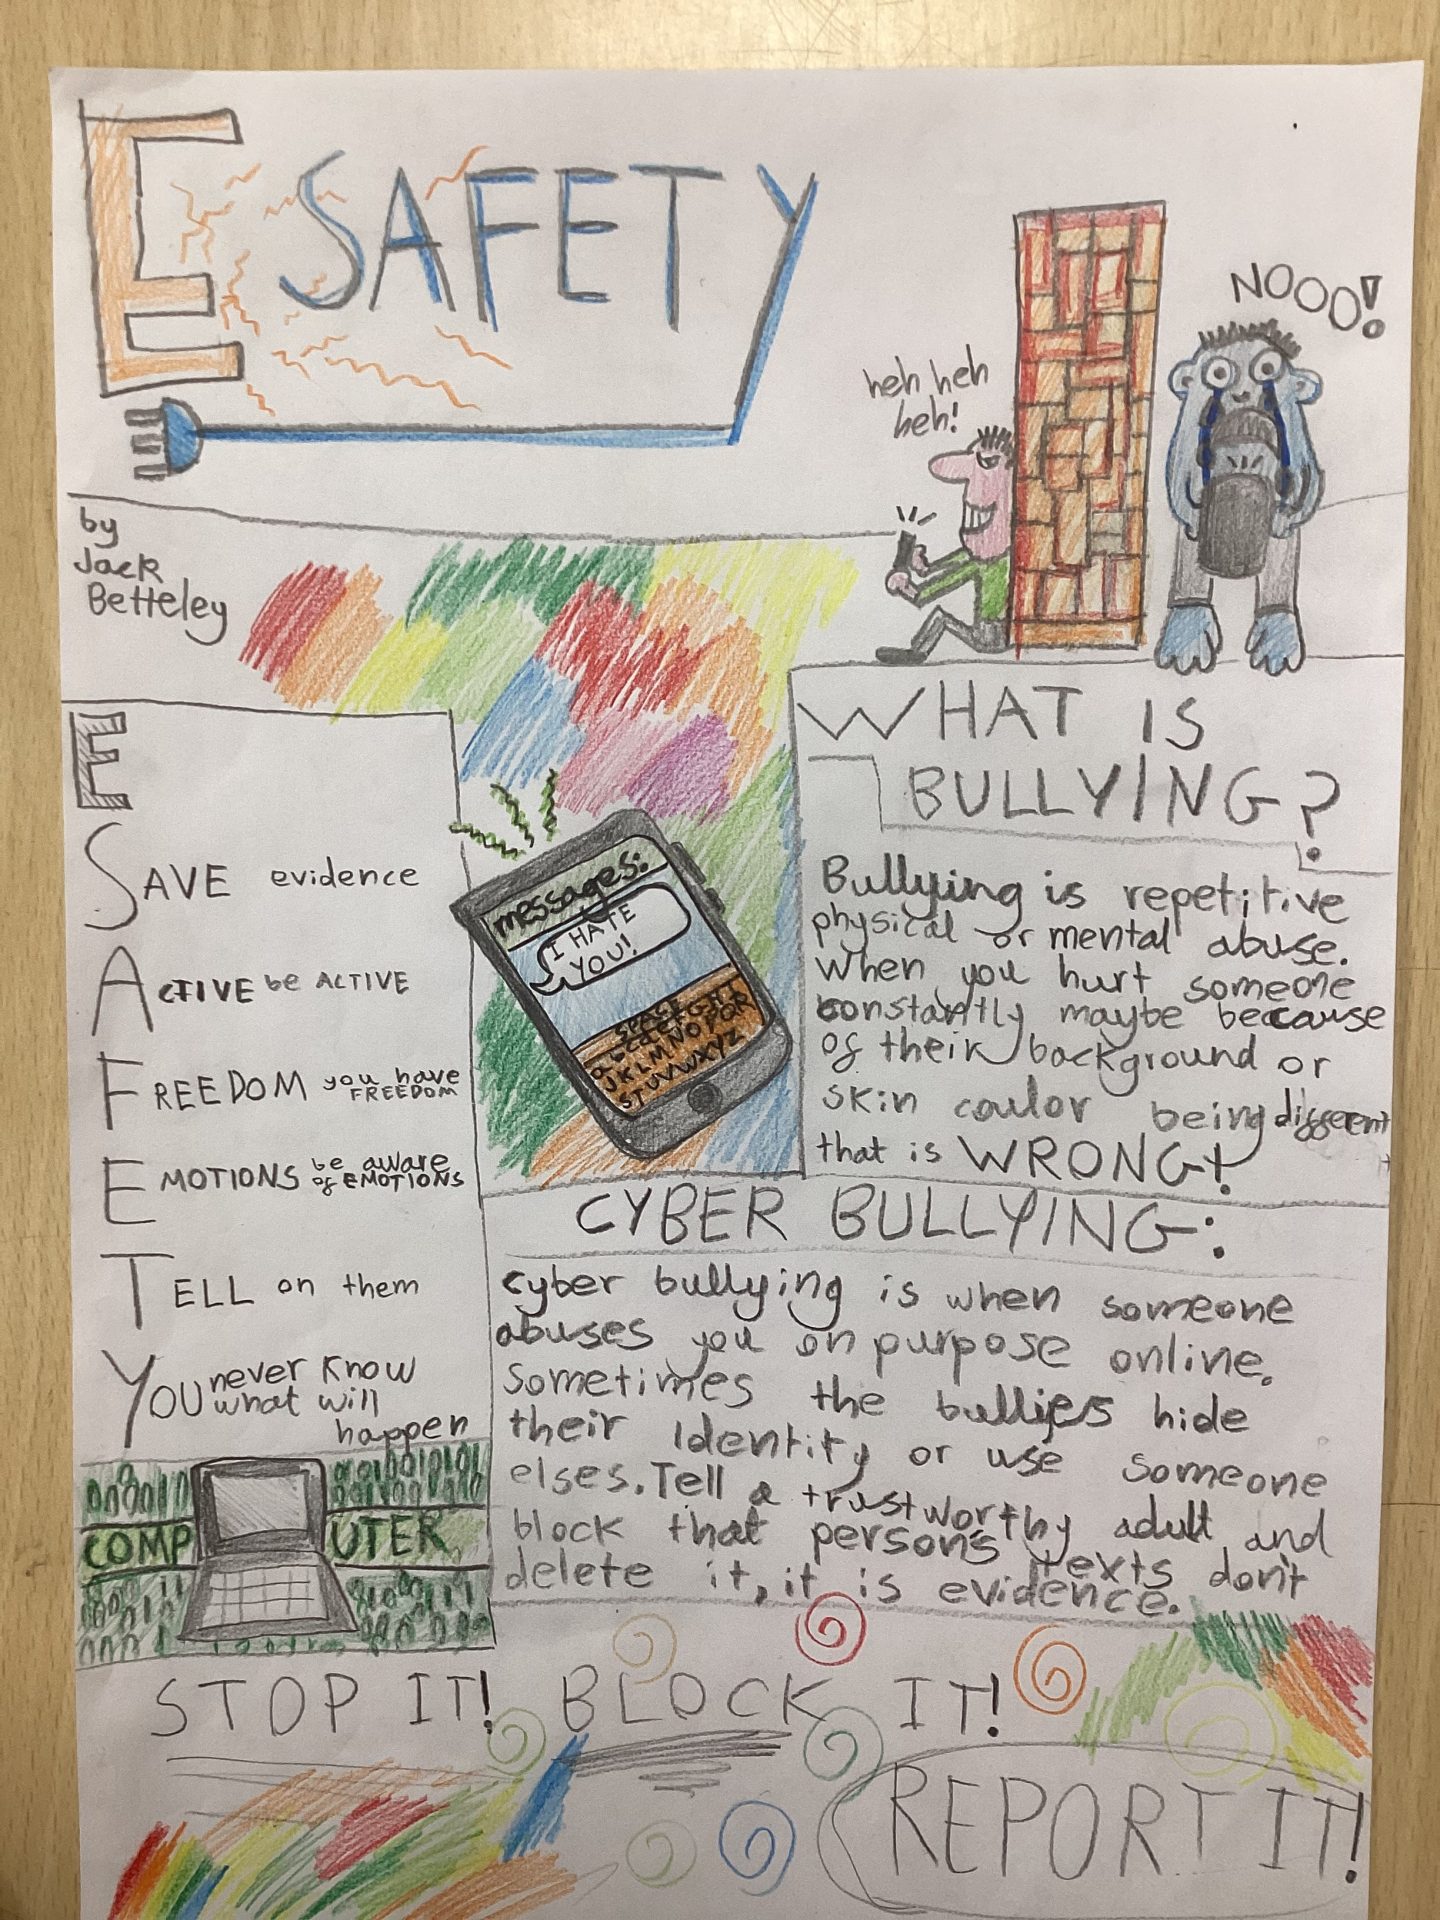 E SAFETY
NOOO!
heh heh
heh!
by
Jack
Betteley
E
SAVE evidence
ACTIVE be ACTIVE
FREEDOM you have
FREEDOM
EMOTIONS be aware
of EMOTIONS
TELL on them
YOU never know
what will
happen
COMPUTER
messages:
I HATE
YOU!
SPACE
JKLMNOPQR
STUVWXYZ
WHAT IS
BULLYING?
Bullying is repetitive
physical or mental abuse.
When you hurt someone
constantly maybe because
of their background or
skin coulor being different
that is WRONG!
CYBER BULLYING:
cyber bullying is when someone
abuses you on purpose online.
Sometimes the bullies hide
their identity or use someone
elses. Tell a trustworthy adult and
block that persons texts don't
delete it, it is evidence.
STOP IT! BLOCK IT!
REPORT IT!